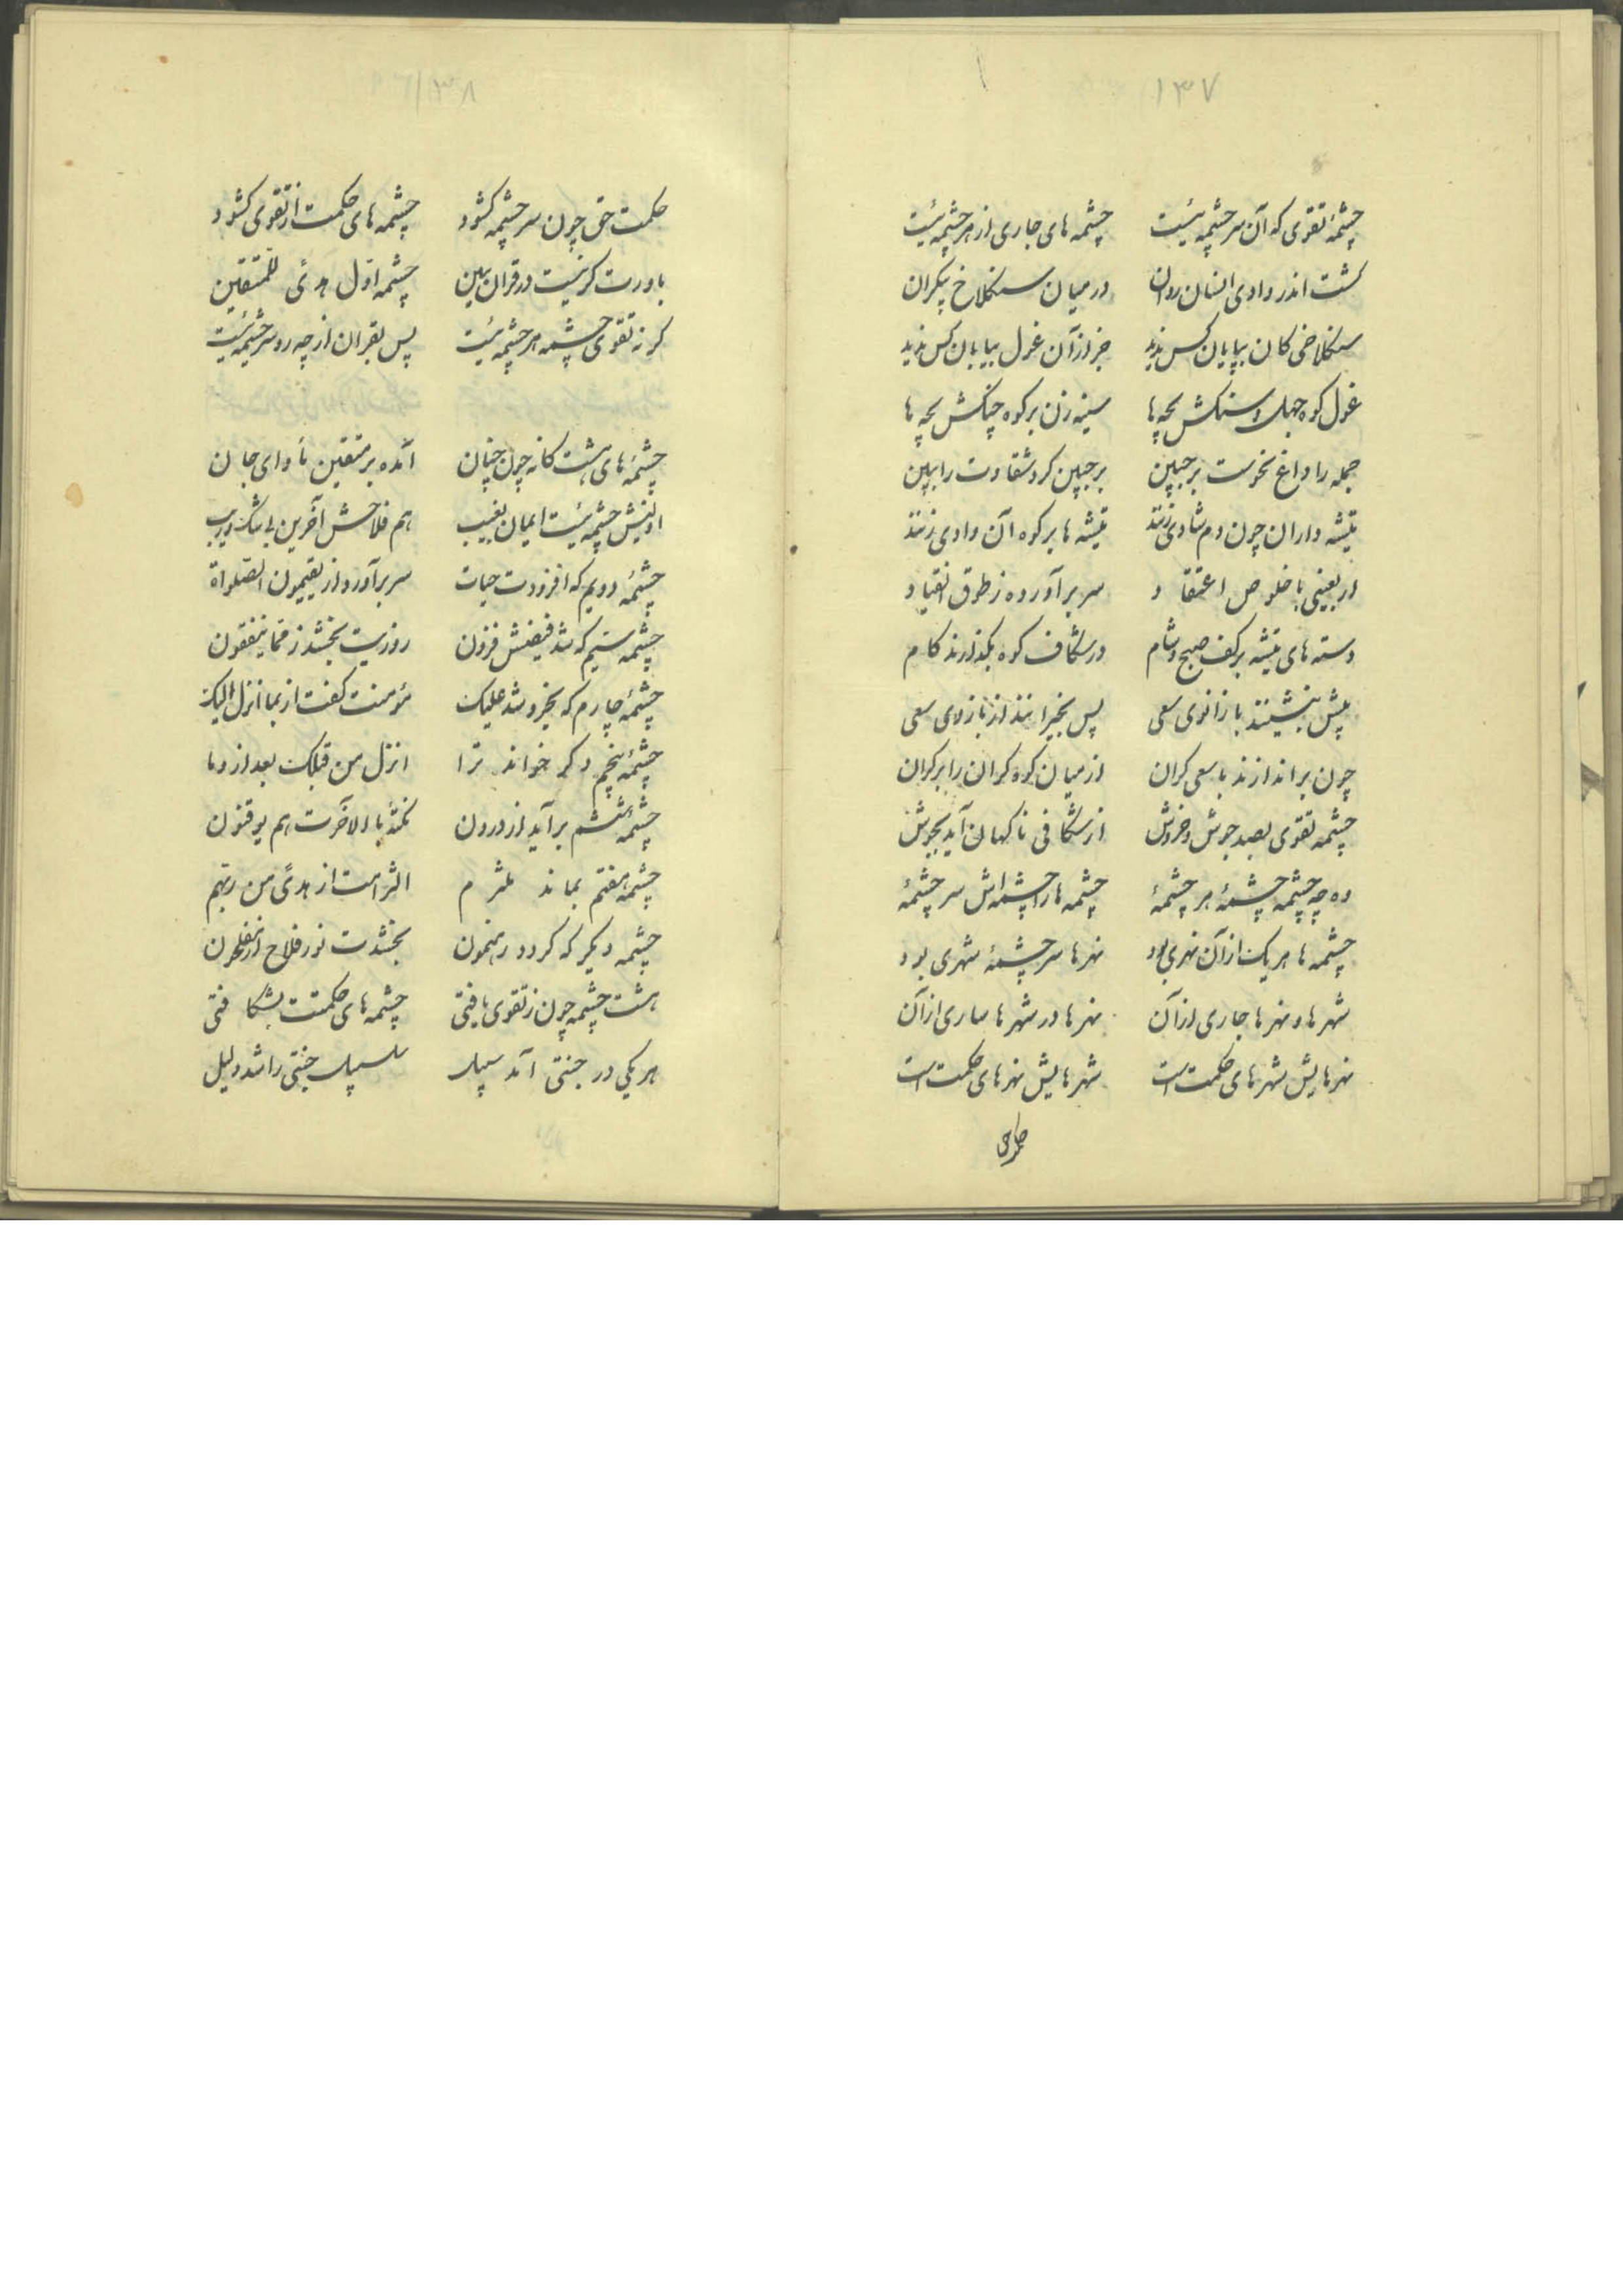 ۱۳۷
چشمهٔ تقوی که آن سرچشمه ئیست چشمه های جاری از هر چشمه ئیست
گشت اندر وادی انسان روان در میان سنکلاخ بیکران
سنکلاخی کان بپایان کس ندید جز از آن غول بیابان کس ندید
غول کوه جهل و سنکش بچه ها سینه زن بر کوه چنکش بچه ها
جمله را داغ نحوست بر جبین بر جبین کرد شقاوت را ببین
تیشه داران چون دم شادی زنند تیشه ها بر کوه آن وادی زنند
اربعینی با خلوص اعتقاد سر برآورده ز طوق انقیاد
دسته های تیشه بر کف صبح و شام در شکاف کوه بکذارند کام
پیش بنشینند با زانوی سعی پس بخیزانند از بازوی سعی
چون براندازند با سعی کران از میان کوه کران را بر کران
چشمه تقوی بصد جوش و خروش از شکافی ناکهان آید بجوش
ده چه چشمه چشمهٔ هر چشمهٔ چشمه ها را چشمه اش سر چشمهٔ
چشمه ها هر یک از آن نهری بود نهرها سرچشمهٔ شهری بود
شهرها و نهرها جاری از آن نهرها در شهرها ساری از آن
نهرهایش شهرهای حکمت است شهرهایش نهرهای حکمت است
۱۳۸
حکمت حق چون سر چشمه کشود چشمه های حکمت از تقوی کشود
باورت کر نیست در قران ببین چشمه اوّل هدًی للمتقین
کر نه تقوی چشمه هر چشمه ئیست پس بقران از چه رو سرچشمه ئیست
چشمهٔ های هشت کانه چون چنان آمده بر متقین مأوای جان
اولینش چشمه ئیست ایمان بغیب هم فلاحش آخرین بی شک و ریب
چشمهٔ دویم که افزودت حیات سر برآورد از یقیمون الصلواة
چشمه سیّم که شد فیضش فزون روزیت بخشد ز ممّا ینفقون
چشمهٔ چارم که بخروشد علیک مؤمنت کفت از بما انزل الیک
چشمهٔ پنجم دکر خواند ترا انزل من قبلک بعد از و ما
چشمهٔ ششم برآید از درون نکتهٔ بالاخرت هم یوقنون
چشمهٔ هفتم بماند ملتزم الترامت از هدًی من ربّهم
چشمه دیکر که کردد رهنمون بخشدت نور فلاح از مفلحون
هشت چشمه چون ز تقوی یافتی چشمه های حکمتت بشکافتی
هر یکی در جنتی آمد سبیل سلسبیل جنتی را شد دلیل